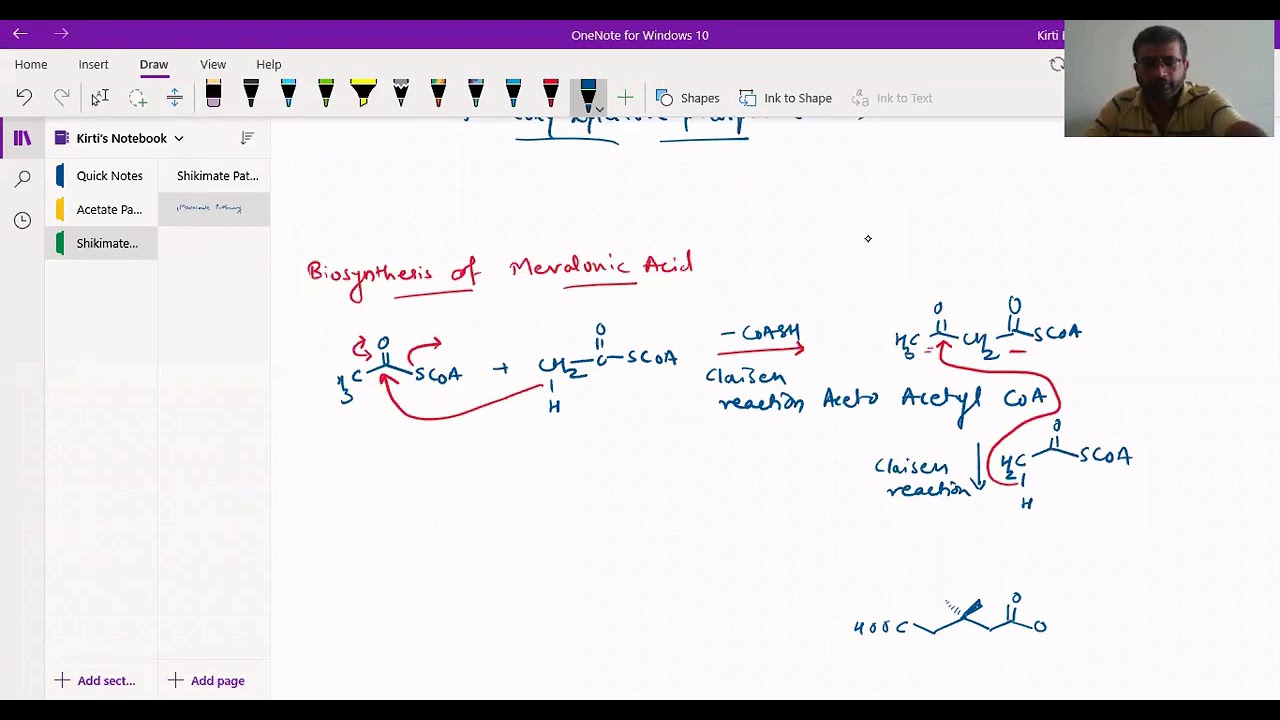 OneNote for Windows 10
Kirti
Home Insert Draw View Help
Shapes Ink to Shape Ink to Text
Kirti's Notebook
Quick Notes
Acetate Pa...
Shikimate...
Shikimate Pat...
Mevalonate Pathway
Biosynthesis of Mevalonic Acid
O
H3C SCoA + CH2 – C – SCoA
O
H
– CoASH
Claisen
reaction
O O
H3C CH2 SCoA
Aceto Acetyl CoA
Claisen
reaction
O
H2C SCoA
H
O
HOOC O
Add sect...
Add page